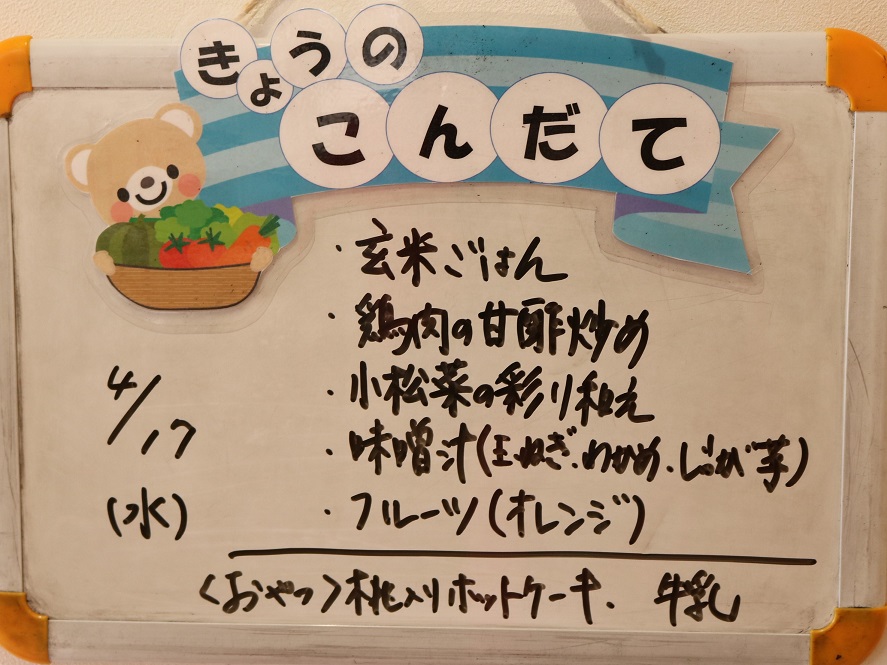 きょうの
こんだて
・玄米ごはん
・鶏肉の甘酢炒め
・小松菜の彩り和え
・味噌汁(玉ねぎ、わかめ、じゃが芋)
・フルーツ(オレンジ)
4/17
(水)
<おやつ>桃入りホットケーキ、牛乳